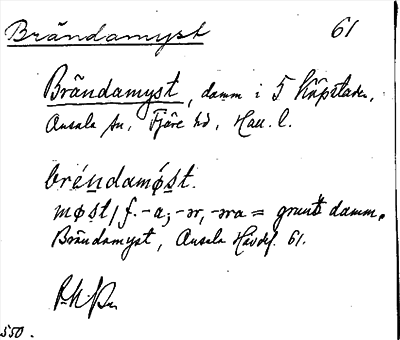 Brändamyst 61
Brändamyst, damm i 5 Köpstaden,
Onsala sn, Fjäre hd, Hall. l.
bréndamǿst.
møst, f. -a; -ər, -əra = grund damm.
Brändamyst, Onsala Hävdef. 61.
550.